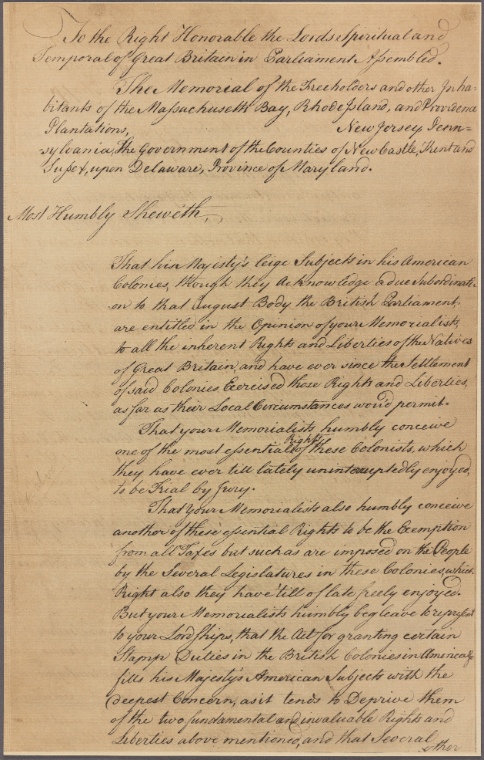 To the Right Honorable the Lords Spiritual and
Temporal of Great Britain in Parliament Assembled.
The Memorial of the Freeholders and other Inha-
bitants of the Massachusetts Bay, Rhode Island, and Providence
Plantations, New Jersey Penn-
sylvania, the Government of the Counties of New Castle, Kent and
Sussex, upon Delaware, Province of Maryland.
Most Humbly Sheweth,
That his Majesty's leige Subjects in his American
Colonies, though they Acknowledge a due Subordinati-
on to that august Body the British Parliament,
are entitled in the Opinion of your Memorialists,
to all the inherent Rights and Liberties of the Natives
of Great Britain, and have ever since the Settlement
of said Colonies Exercised those Rights and Liberties,
as far as their Local Circumstances would permit.
That your Memorialists humbly conceive
one of the most essential Rights of these Colonists, which
they have ever till lately uninterruptedly enjoyed,
to be Trial by Jury.
That your Memorialists also humbly conceive
another of these essential Rights to be the Exemption
from all Taxes but such as are imposed on the People
by the Several Legislatures in these Colonies, which
Right also they have till of late freely enjoyed.
But your Memorialists humbly beg leave to represent
to your Lordships, that the Act for granting certain
Stamp Duties in the British Colonies in America
fills his Majesty's American Subjects with the
deepest Concern, as it tends to Deprive them
of the two fundamental and invaluable Rights and
Liberties above mentioned, and that Several
other